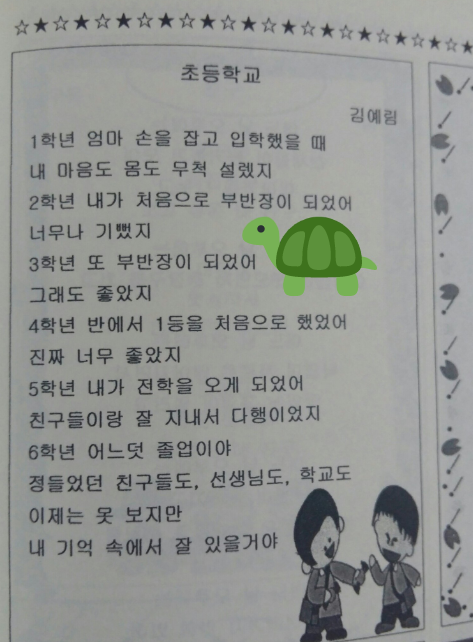 초등학교
김예림
1학년 엄마 손을 잡고 입학했을 때
내 마음도 몸도 무척 설렜지
2학년 내가 처음으로 부반장이 되었어
너무나 기뻤지
3학년 또 부반장이 되었어
그래도 좋았지
4학년 반에서 1등을 처음으로 했었어
진짜 너무 좋았지
5학년 내가 전학을 오게 되었어
친구들이랑 잘 지내서 다행이었지
6학년 어느덧 졸업이야
정들었던 친구들도, 선생님도, 학교도
이제는 못 보지만
내 기억 속에서 잘 있을거야